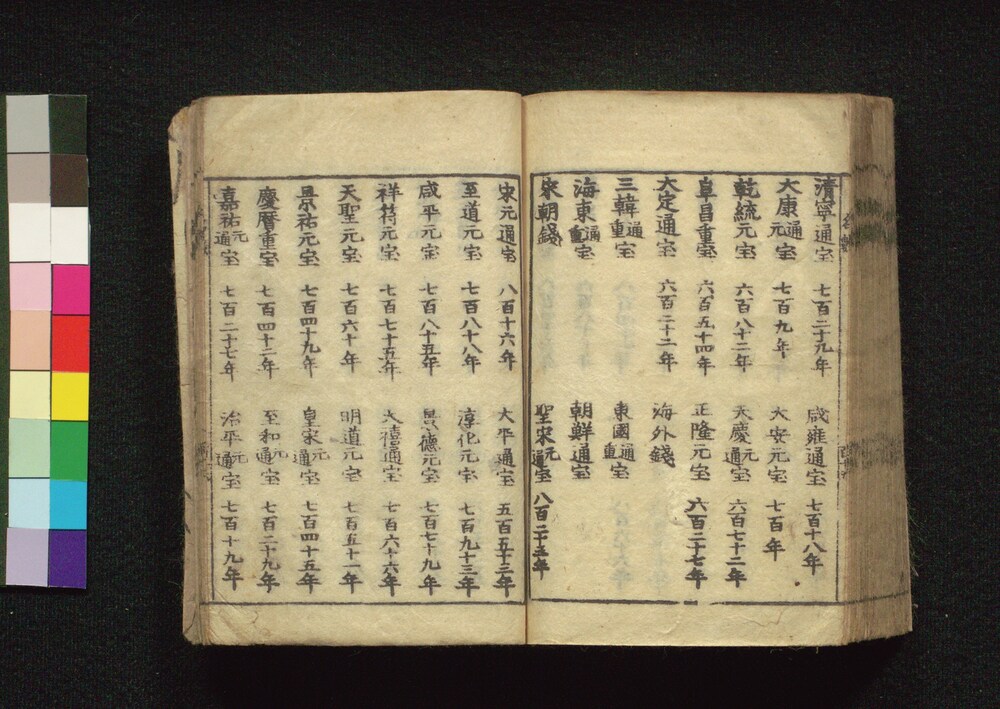 清寧通宝 七百二十九年 咸雍通宝 七百十八年
大康通元宝 七百九年 大安元宝 七百年
乾統元宝 六百八十二年 天慶通元宝 六百七十二年
阜昌重宝 六百五十四年 正隆元宝 六百二十七年
大定通宝 六百二十二年 海外錢
三韓通重宝 東國通重宝
海東通重宝 朝鮮通宝
宋朝錢 聖宋元通宝 八百二十五年
宋元通宝 八百十六年 大平通宝 五百五十三年
至道元宝 七百八十八年 淳化元宝 七百九十三年
咸平元宝 七百八十五年 景德元宝 七百七十九年
祥符元宝 七百七十五年 天禧通宝 七百六十六年
天聖元宝 七百六十年 明道元宝 七百五十一年
景祐元宝 七百四十九年 皇宋元通宝 七百四十五年
慶曆重宝 七百四十二年 至和元通宝 七百二十九年
嘉祐元通宝 七百二十七年 治平元通宝 七百十九年